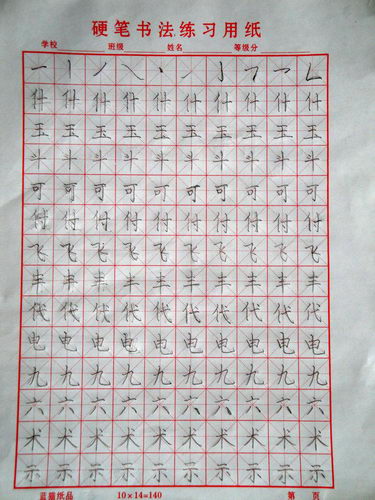 硬笔书法练习用纸
学校 班级 姓名 等级分
一 丨 丿 ㇏ 丶 ㇀ 亅 ㇆ 乛 ㇄
什 什 什 什 什 什 什 什 什 什
玉 玉 玉 玉 玉 玉 玉 玉 玉 玉
斗 斗 斗 斗 斗 斗 斗 斗 斗 斗
可 可 可 可 可 可 可 可 可 可
付 付 付 付 付 付 付 付 付 付
飞 飞 飞 飞 飞 飞 飞 飞 飞 飞
丰 丰 丰 丰 丰 丰 丰 丰 丰 丰
代 代 代 代 代 代 代 代 代 代
电 电 电 电 电 电 电 电 电 电
九 九 九 九 九 九 九 九 九 九
六 六 六 六 六 六 六 六 六 六
术 术 术 术 术 术 术 术 术 术
示 示 示 示 示 示 示 示 示 示
蓝猫纸品 10×14=140 第 页